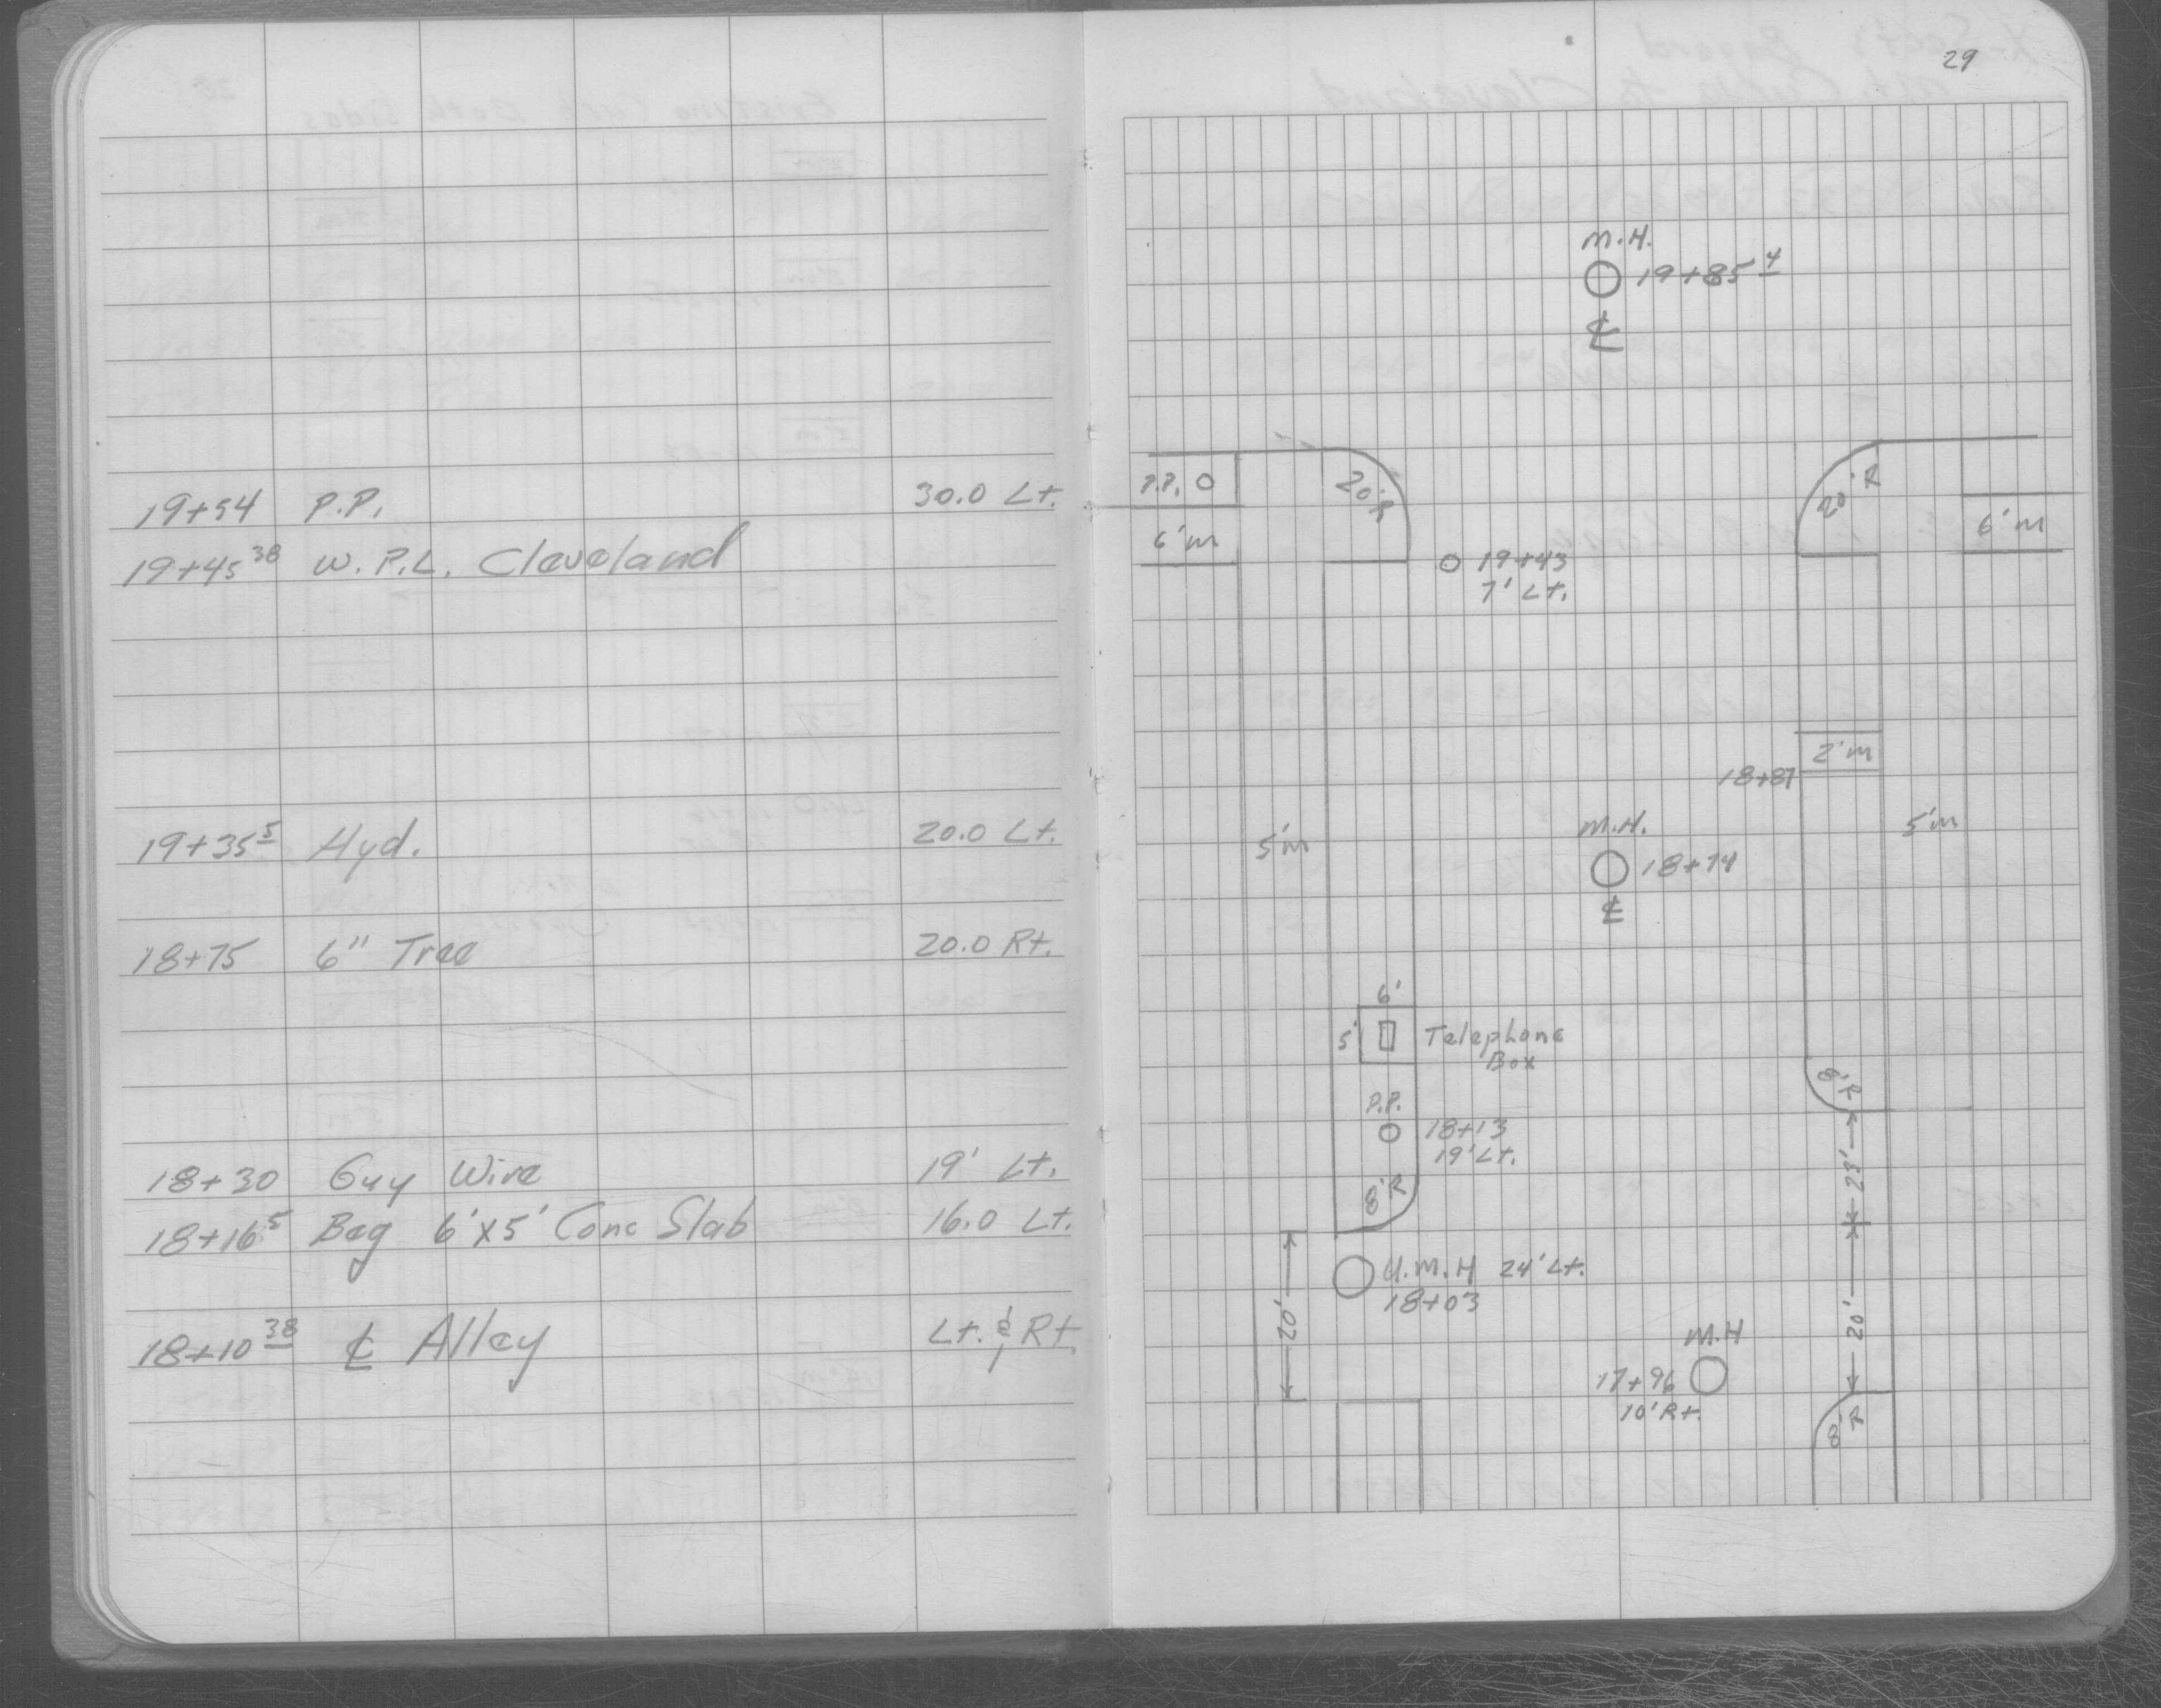 19+54 P.P. 30.0 Lt.
19+45 38 W.P.L. Cleveland
19+35 5 Hyd. 20.0 Lt.
18+75 6" Tree 20.0 Rt.
18+30 Guy Wire 19' Lt.
18+16 5 Beg 6'x5' Conc Slab 16.0 Lt.
18+10 38 ℄ Alley Lt. & Rt.
29
M.H.
19+85 4
℄
P.P. 20'R 20'R
6'm 6'm
19+43
7' Lt.
2'm
18+87
M.H.
5'm 18+74 5'm
℄
6'
5' Telephone
Box
8'R
P.P.
18+13
19' Lt.
23'
8'R
U.M.H 24' Lt.
18+03
20' 20'
M.H
17+96
10' Rt.
8'R